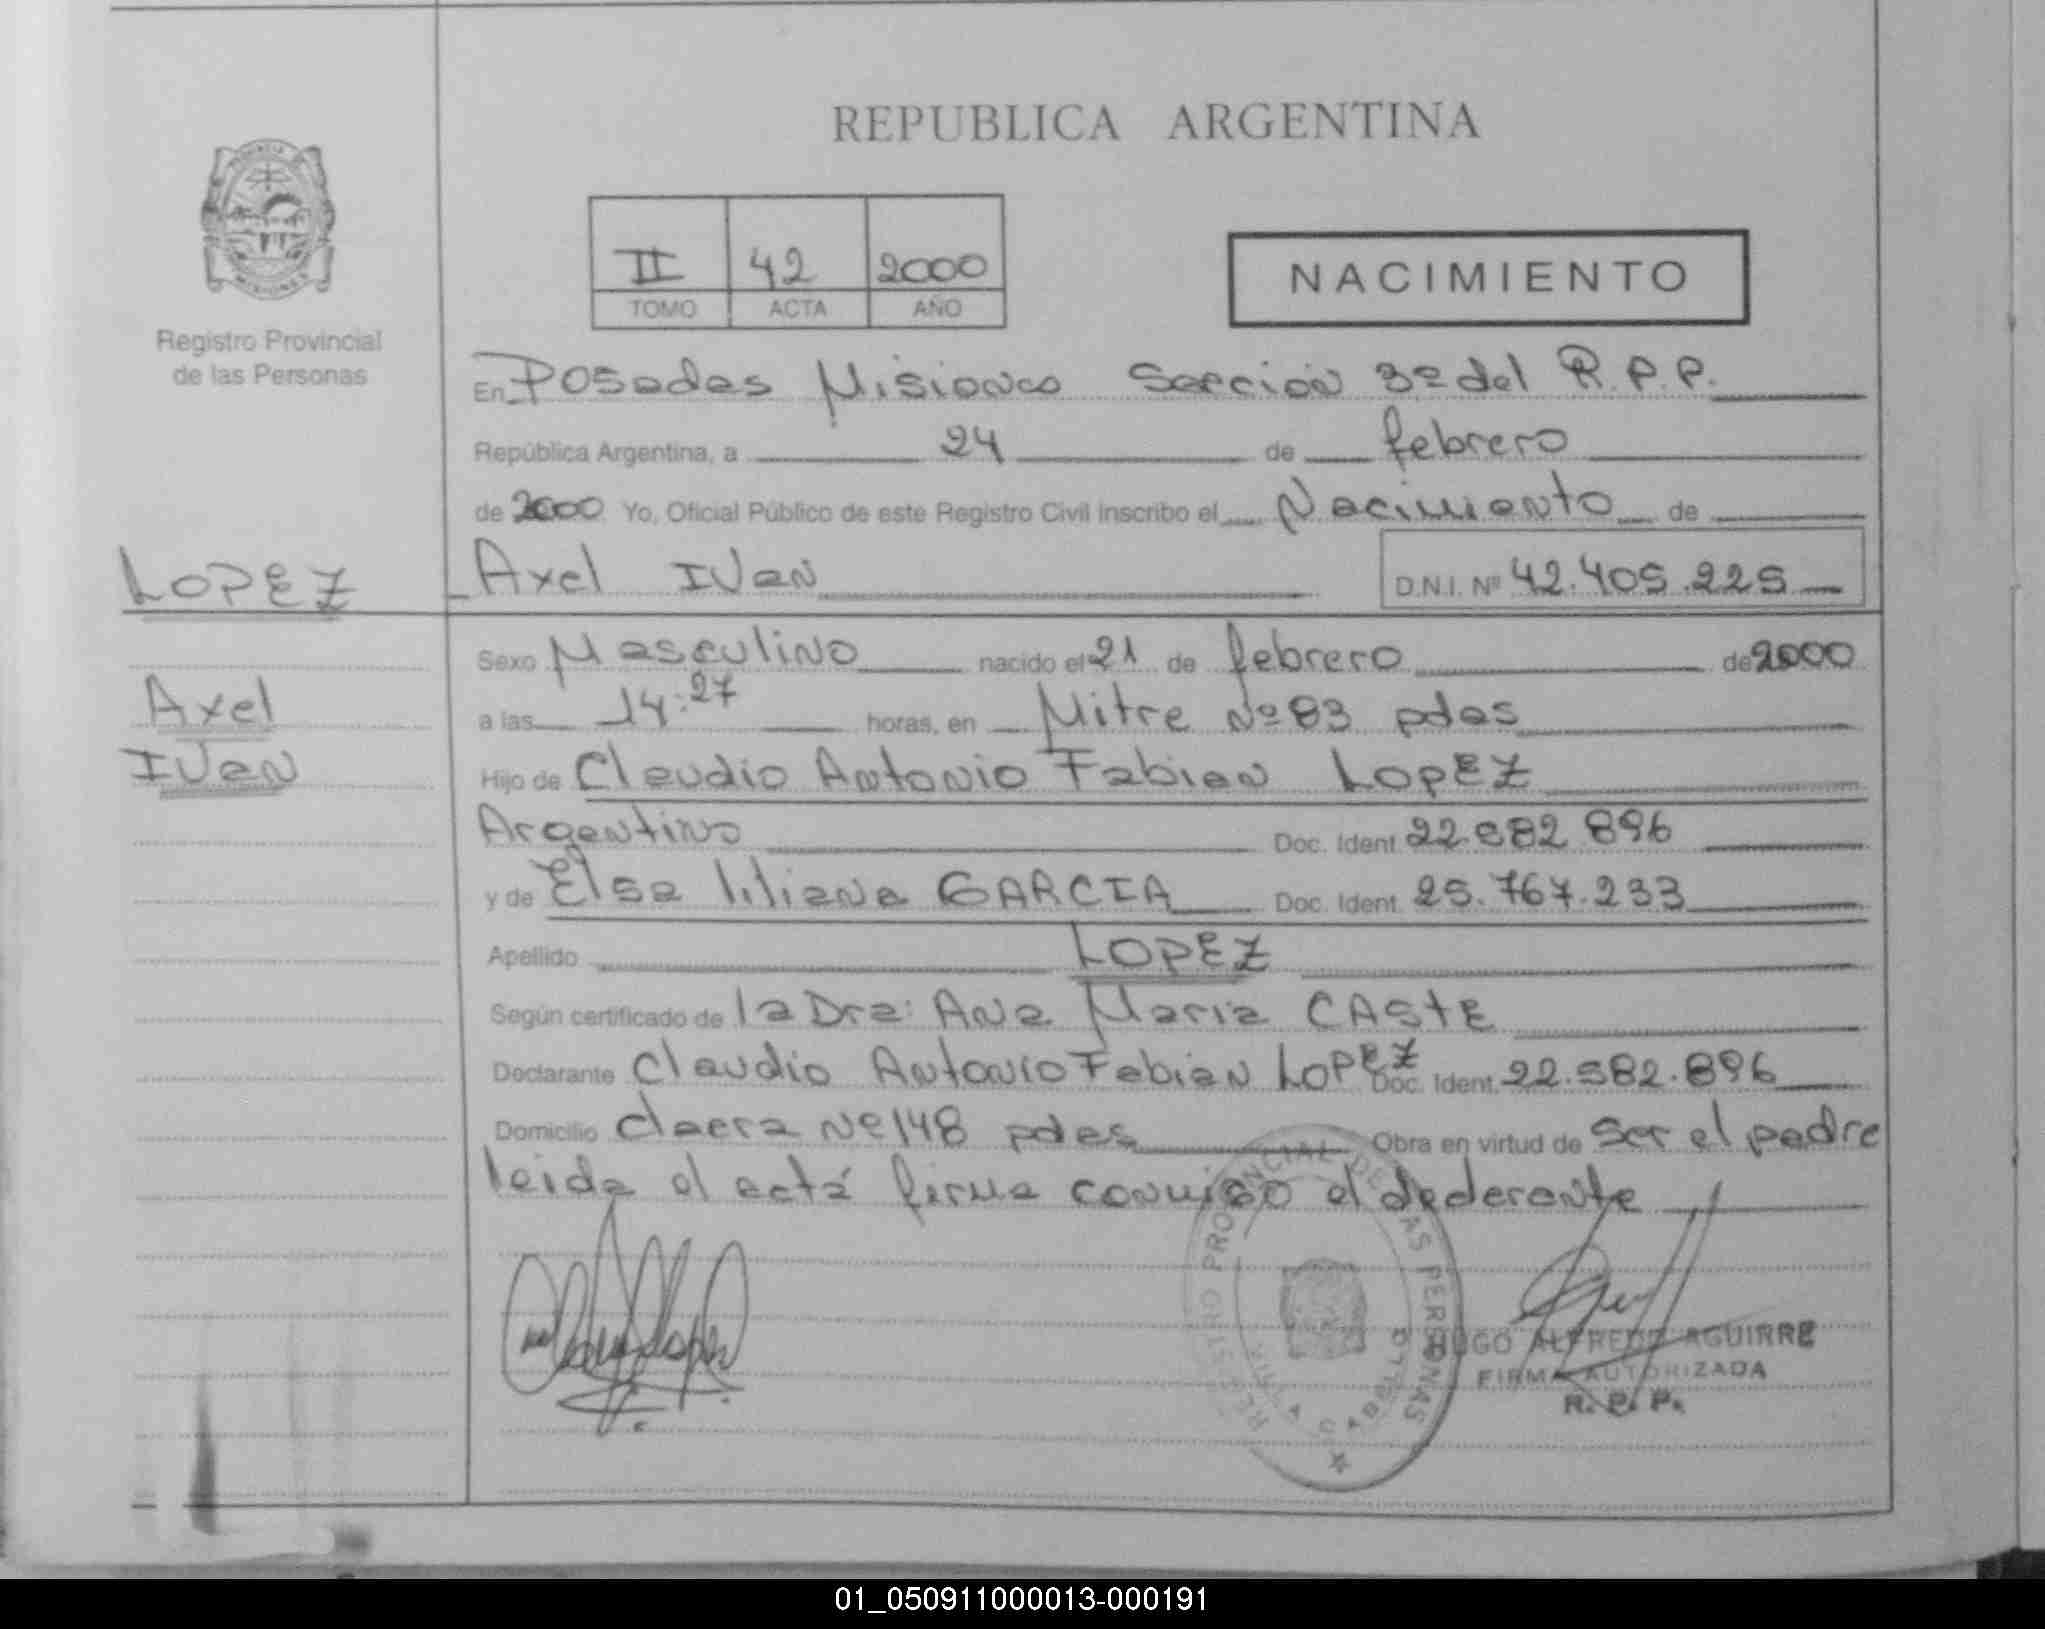 REPUBLICA ARGENTINA
PROVINCIA DE
MISIONES
Registro Provincial
de las Personas
II 42 2000
TOMO ACTA AÑO
NACIMIENTO
En Posadas Misiones Seccion 3º del R.P.P.
República Argentina, a 24 de febrero
de 2000 Yo, Oficial Público de este Registro Civil inscribo el Nacimiento de
LOPEZ
Axel Ivan D.N.I. Nº 42.405.225
Axel
Ivan
Sexo Masculino nacido el 21 de febrero de 2000
a las 14:27 horas, en Mitre Nº 83 pdas
Hijo de Claudio Antonio Fabian LOPEZ
Argentino Doc. Ident. 22.582.896
y de Elsa liliana GARCIA Doc. Ident. 25.767.233
Apellido LOPEZ
Según certificado de la Dra: Ana Maria CASTE
Declarante Claudio Antonio Fabian LOPEZ Doc. Ident. 22.582.896
Domicilio Nº 148 pdas Obra en virtud de ser el padre
leida el acta firma conmigo el declarante
REGISTRO PROVINCIAL DE LAS PERSONAS
VILLA CABELLO
HUGO ALFREDO AGUIRRE
FIRMA AUTORIZADA
R. P. P.
01_050911000013-000191